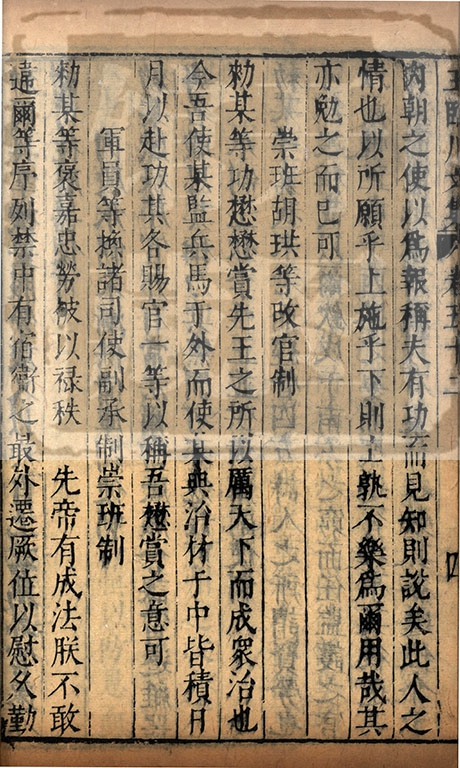 王臨川文集 卷五十二 四
內朝之使以爲報稱夫有功而見知則說矣此人之
情也以所願乎上施乎下則士孰不樂爲爾用哉其
亦勉之而已可
崇班胡珙等改官制
勑某等功懋懋賞先王之所以厲天下而成衆治也
今吾使某監兵馬于外而使某典治材于中皆積日
月以赴功其各賜官一等以稱吾懋賞之意可
軍員等換諸司使副承制崇班制
勑某等褒嘉忠勞被以禄秩 先帝有成法朕不敢
違爾等序列禁中有宿衞之最外遷厥位以慰久勤